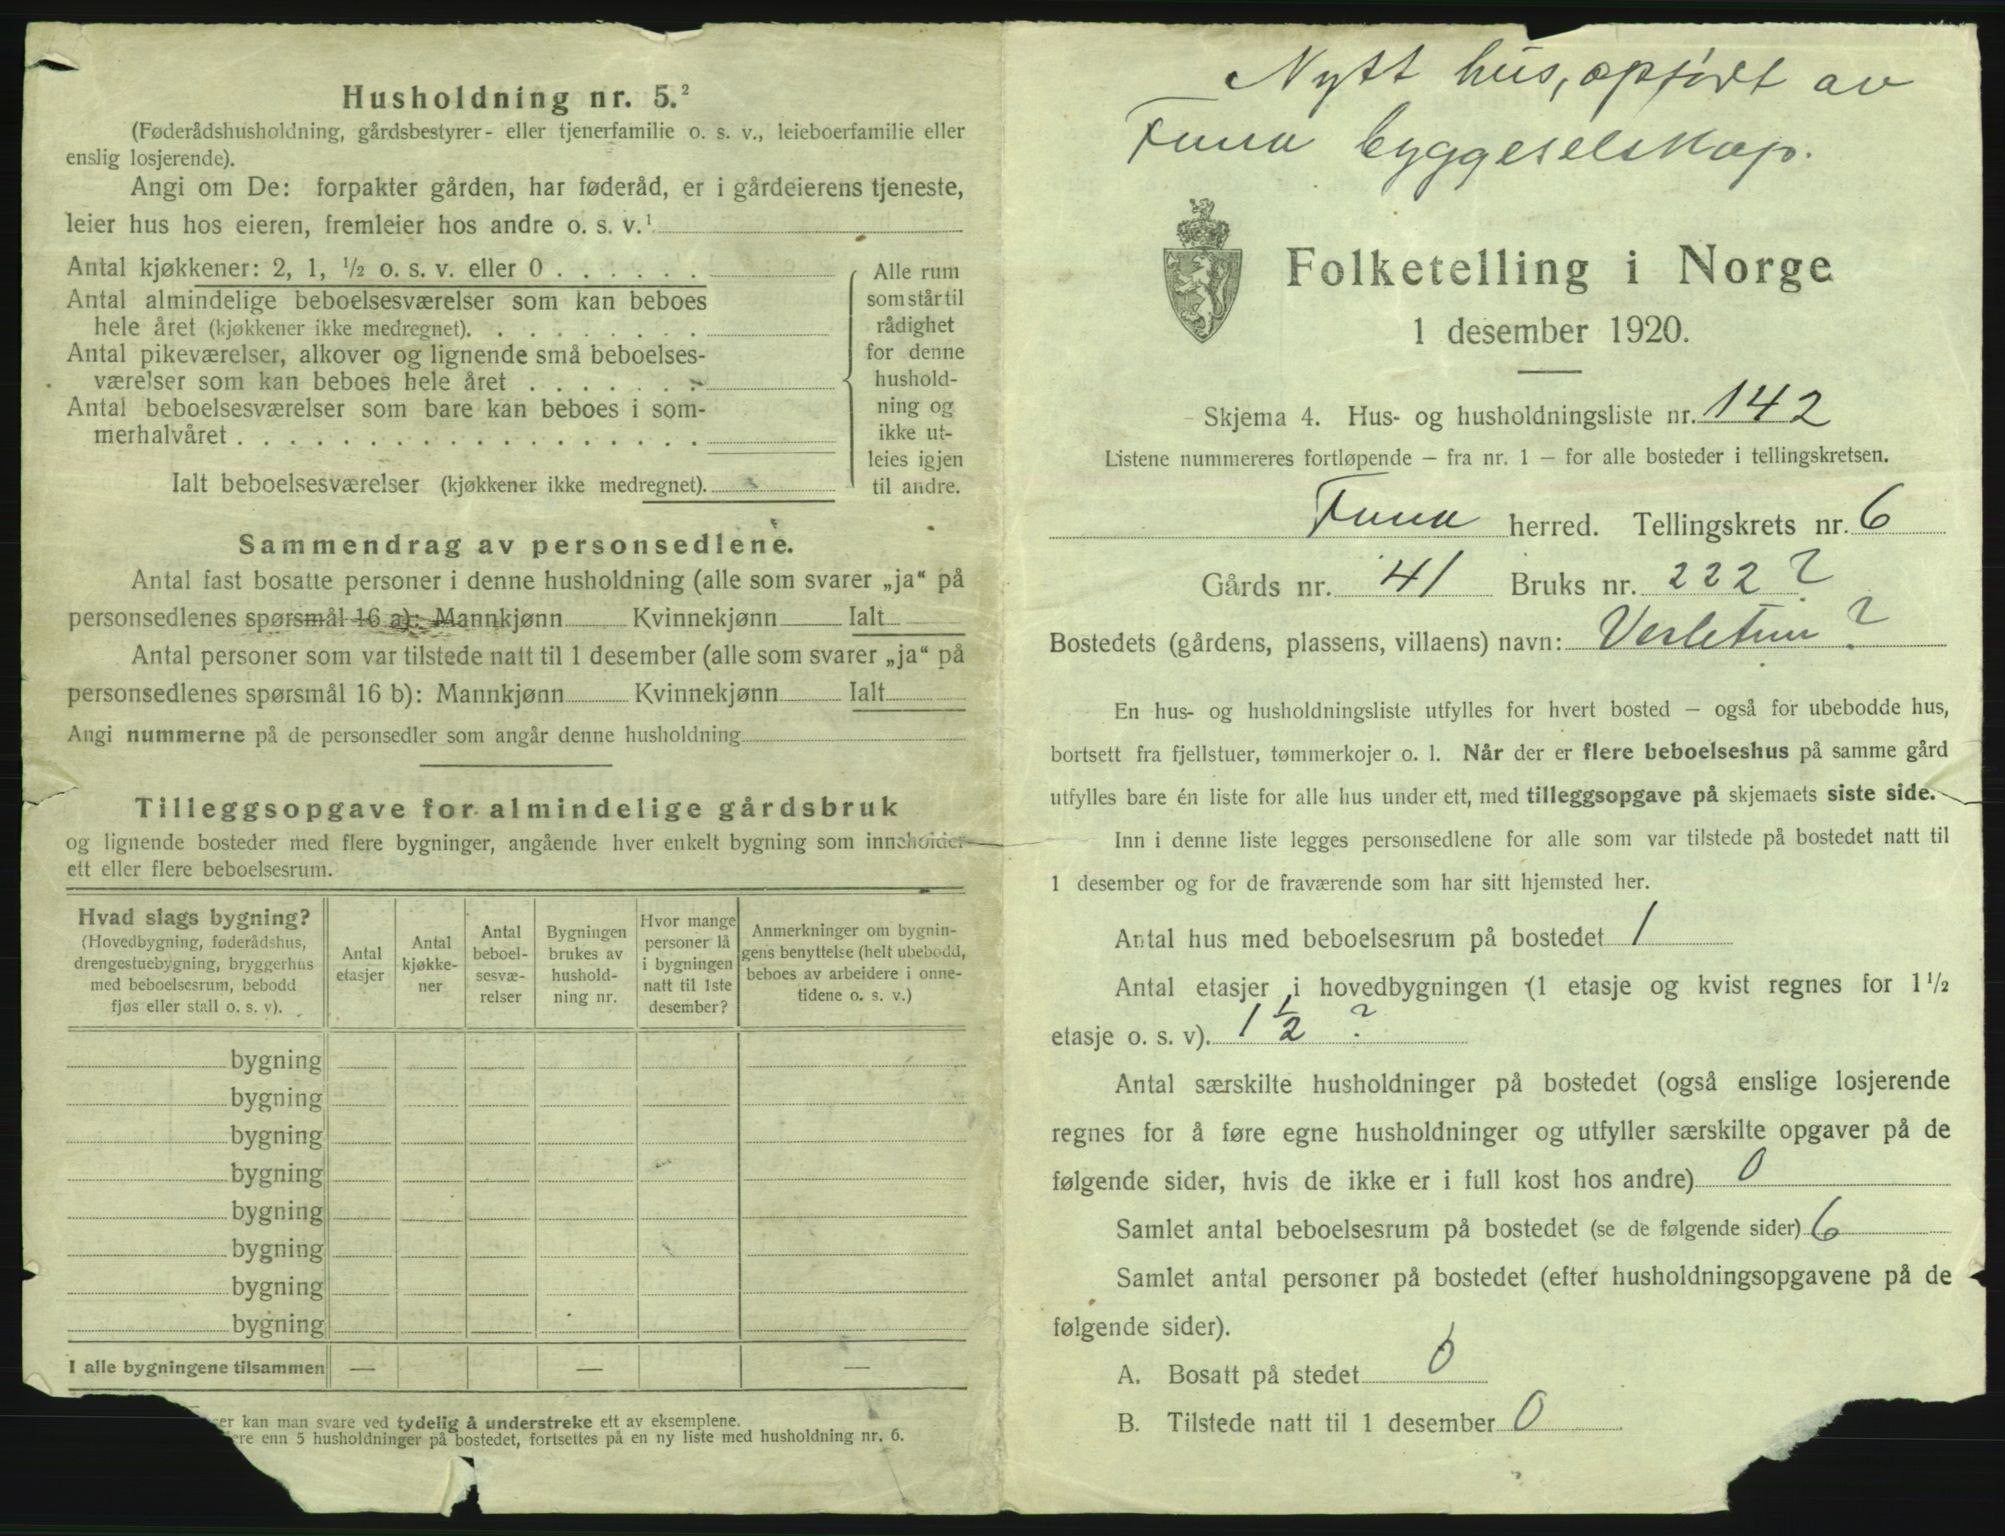 Husholdning nr. 5.²
(Føderådshusholdning, gårdsbestyrer- eller tjenerfamilie o. s. v., leieboerfamilie eller
enslig losjerende).
Angi om De: forpakter gården, har føderåd, er i gårdeierens tjeneste,
leier hus hos eieren, fremleier hos andre o. s. v.¹
Antal kjøkkener: 2, 1, ½ o. s. v. eller 0 . . . . . .
Antal almindelige beboelsesværelser som kan beboes
hele året (kjøkkener ikke medregnet). . . . . . . . . .
Antal pikeværelser, alkover og lignende små beboelses-
værelser som kan beboes hele året . . . . . . .
Antal beboelsesværelser som bare kan beboes i som-
merhalvåret . . . . . . . . . . . . . . . . . .
Ialt beboelsesværelser (kjøkkener ikke medregnet).
Alle rum
som står til
rådighet
for denne
hushold-
ning og
ikke ut-
leies igjen
til andre.
Sammendrag av personsedlene.
Antal fast bosatte personer i denne husholdning (alle som svarer „ja“ på
personsedlenes spørsmål 16 a): Mannkjønn Kvinnekjønn Ialt
Antal personer som var tilstede natt til 1 desember (alle som svarer „ja“ på
personsedlenes spørsmål 16 b): Mannkjønn Kvinnekjønn Ialt
Angi nummerne på de personsedler som angår denne husholdning
Tilleggsopgave for almindelige gårdsbruk
og lignende bosteder med flere bygninger, angående hver enkelt bygning som inneholder
ett eller flere beboelsesrum.
Hvad slags bygning?
(Hovedbygning, føderådshus,
drengestuebygning, bryggerhus
med beboelsesrum, bebodd
fjøs eller stall o. s. v).
Antal
etasjer
Antal
kjøkke-
ner
Antal
beboel-
sesvæ-
relser
Bygningen
brukes av
hushold-
ning nr.
Hvor mange
personer lå
i bygningen
natt til 1ste
desember?
Anmerkninger om bygnin-
gens benyttelse (helt ubebodd,
beboes av arbeidere i onne-
tidene o. s. v.)
bygning
bygning
bygning
bygning
bygning
bygning
bygning
bygning
I alle bygningene tilsammen — — —
ser kan man svare ved tydelig å understreke ett av eksemplene.
ere enn 5 husholdninger på bostedet, fortsettes på en ny liste med husholdning nr. 6.
Nytt hus, opført av
Fana byggeselskap.
Folketelling i Norge
1 desember 1920.
Skjema 4. Hus- og husholdningsliste nr. 142
Listene nummereres fortløpende – fra nr. 1 – for alle bosteder i tellingskretsen.
Fana herred. Tellingskrets nr. 6
Gårds nr. 41 Bruks nr. 222 ?
Bostedets (gårdens, plassens, villaens) navn: Vesletun ?
En hus- og husholdningsliste utfylles for hvert bosted – også for ubebodde hus,
bortsett fra fjellstuer, tømmerkojer o. l. Når der er flere beboelseshus på samme gård
utfylles bare én liste for alle hus under ett, med tilleggsopgave på skjemaets siste side.
Inn i denne liste legges personsedlene for alle som var tilstede på bostedet natt til
1 desember og for de fraværende som har sitt hjemsted her.
Antal hus med beboelsesrum på bostedet 1
Antal etasjer i hovedbygningen (1 etasje og kvist regnes for 1½
etasje o. s. v). 1½ ?
Antal særskilte husholdninger på bostedet (også enslige losjerende
regnes for å føre egne husholdninger og utfyller særskilte opgaver på de
følgende sider, hvis de ikke er i full kost hos andre) 0
Samlet antal beboelsesrum på bostedet (se de følgende sider) 6
Samlet antal personer på bostedet (efter husholdningsopgavene på de
følgende sider).
A. Bosatt på stedet 0
B. Tilstede natt til 1 desember 0